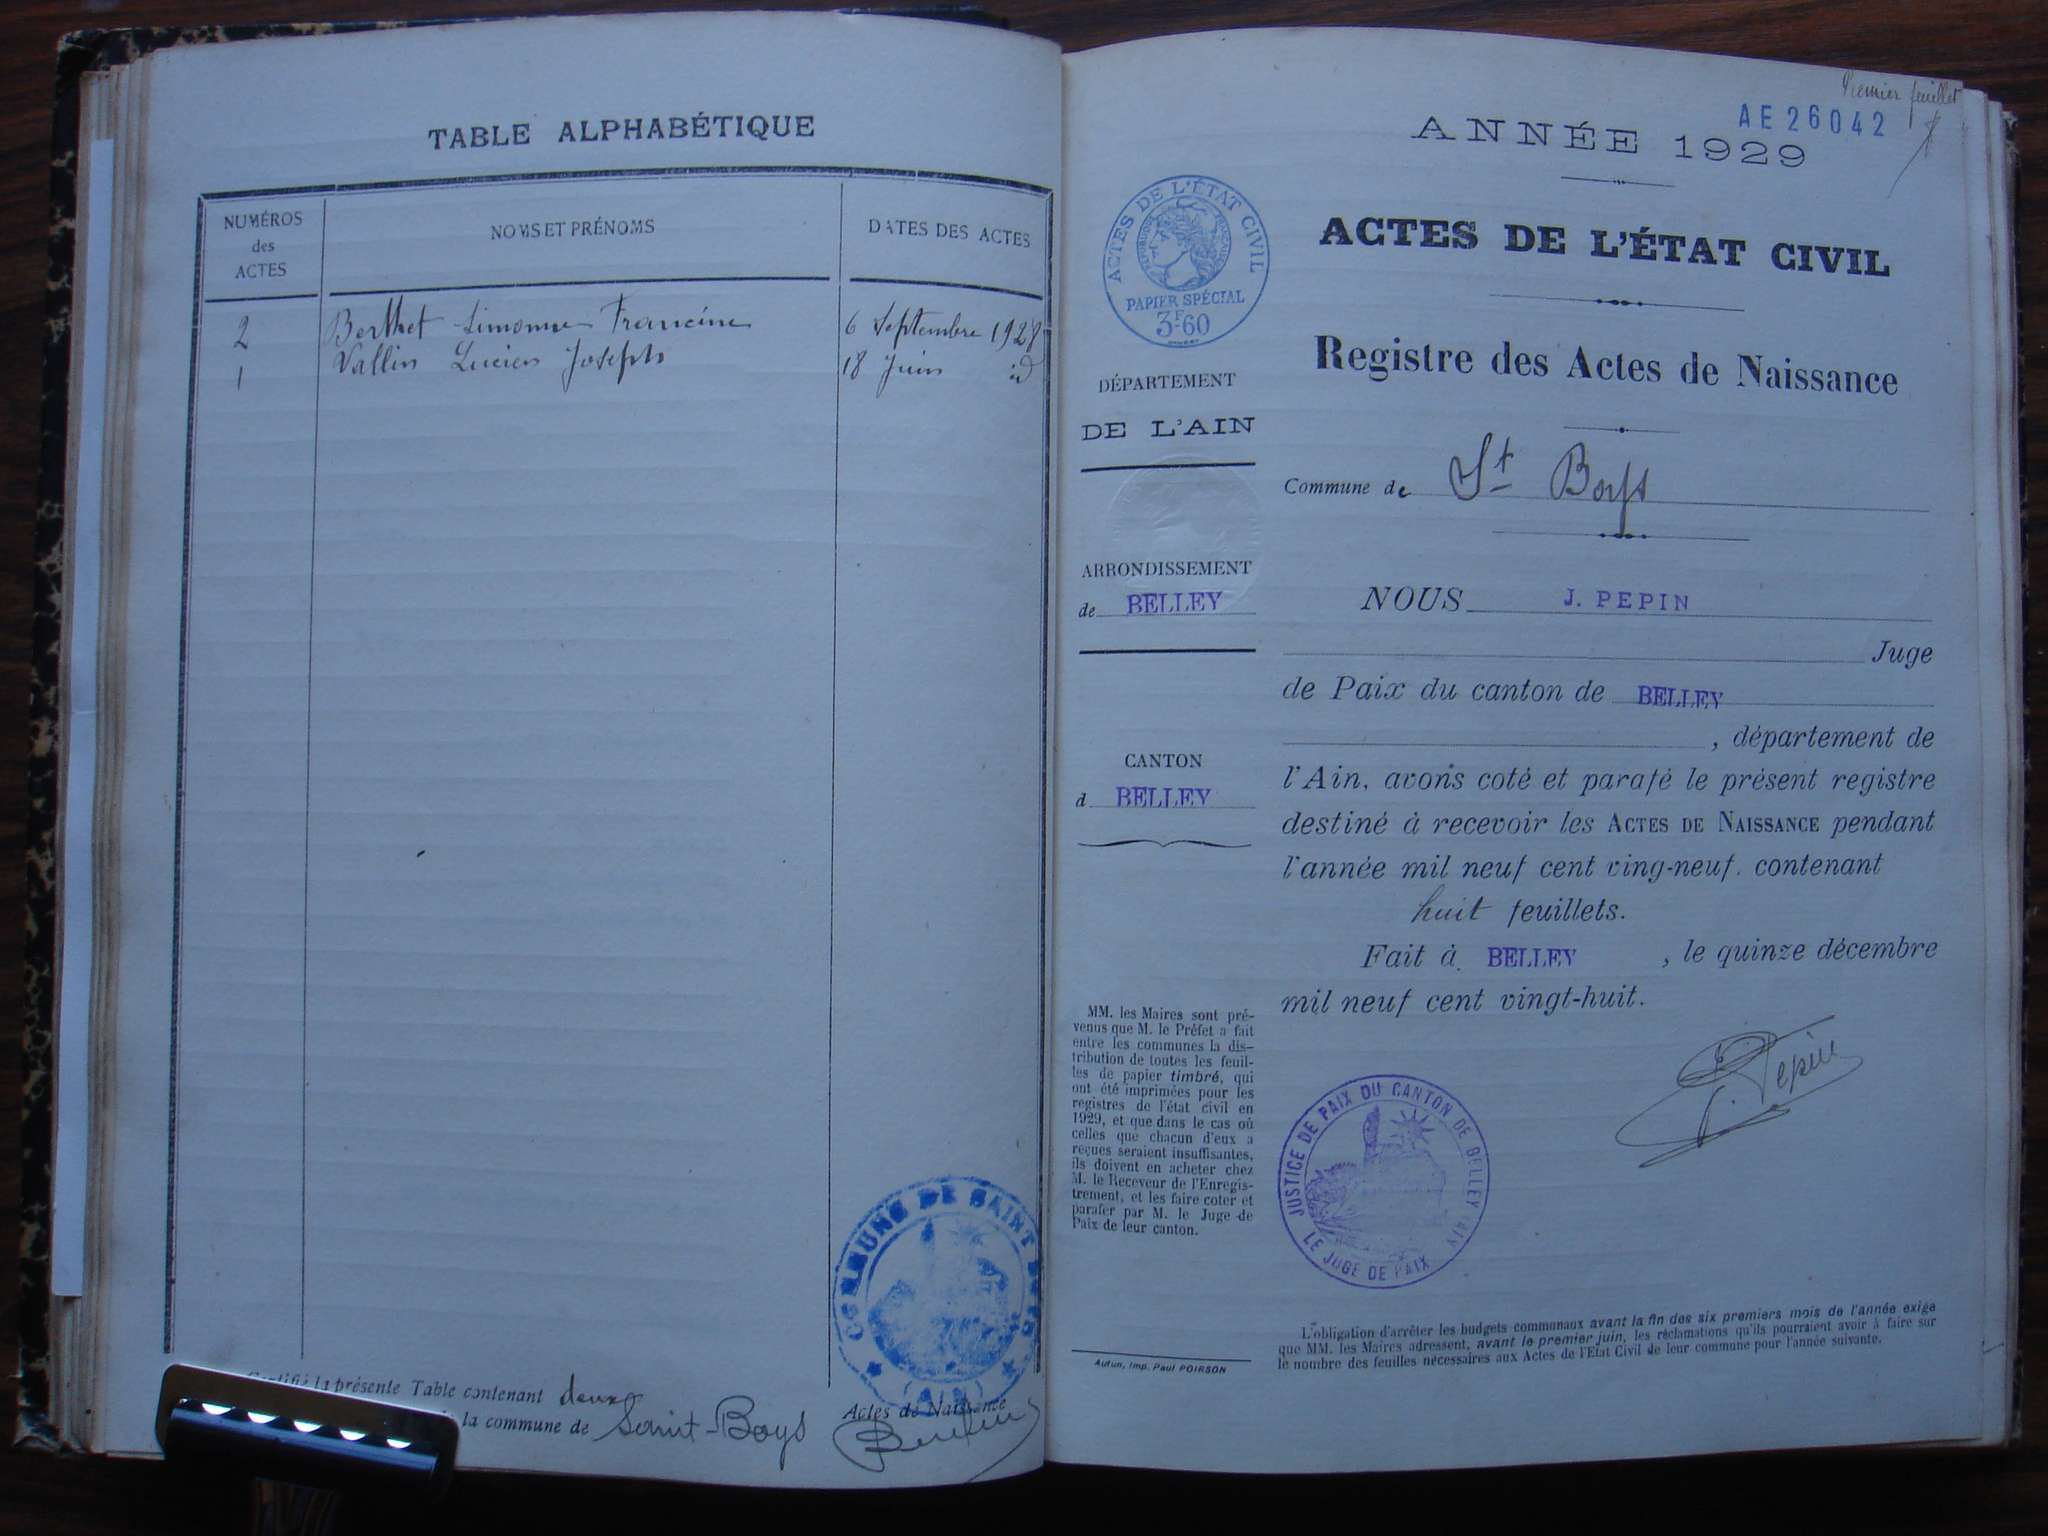 TABLE ALPHABÉTIQUE
NUMÉROS
des
ACTES
NOMS ET PRÉNOMS
DATES DES ACTES
2 Berthet Simonne Francine 6 Septembre 1928
1 Vallin Lucien Joseph 18 Juin id
Certifié la présente Table contenant deux Actes de Naissance
la commune de Saint-Boys
COMMUNE DE SAINT BOYS
(AIN)
Premier feuillet
AE 26042
ANNÉE 1929
ACTES DE L'ÉTAT CIVIL
RÉPUBLIQUE FRANÇAISE
PAPIER SPÉCIAL
3F60
ACTES DE L'ÉTAT CIVIL
Registre des Actes de Naissance
DÉPARTEMENT
DE L'AIN
Commune de St Boys
ARRONDISSEMENT
de BELLEY
CANTON
d BELLEY
NOUS J. PEPIN
Juge
de Paix du canton de BELLEY
, département de
l'Ain, avons coté et parafé le présent registre
destiné à recevoir les ACTES DE NAISSANCE pendant
l'année mil neuf cent ving-neuf. contenant
huit feuillets.
Fait à BELLEY , le quinze décembre
mil neuf cent vingt-huit.
J. Pepin
JUSTICE DE PAIX DU CANTON DE BELLEY (AIN)
LE JUGE DE PAIX
MM. les Maires sont pré-
venus que M. le Préfet a fait
entre les communes la dis-
tribution de toutes les feuil-
les de papier timbré, qui
ont été imprimées pour les
registres de l'état civil en
1929, et que dans le cas où
celles que chacun d'eux a
reçues seraient insuffisantes,
ils doivent en acheter chez
M. le Receveur de l'Enregis-
trement, et les faire coter et
parafer par M. le Juge de
Paix de leur canton.
Autun, Imp. Paul POIRSON
L'obligation d'arrêter les budgets communaux avant la fin des six premiers mois de l'année exige
que MM. les Maires adressent, avant le premier juin, les réclamations qu'ils pourraient avoir à faire sur
le nombre des feuilles nécessaires aux Actes de l'Etat Civil de leur commune pour l'année suivante.